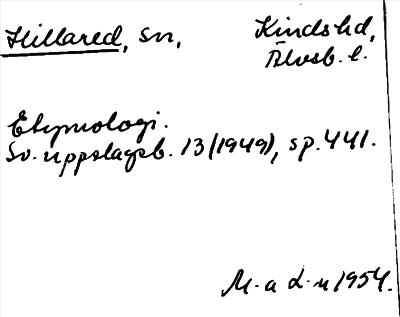 Hillared, sn,
Kinds hd,
Älvsb. l.
Etymologi.
Sv. uppslagsb. 13 (1949), sp. 441.
M. a L-n 1954.